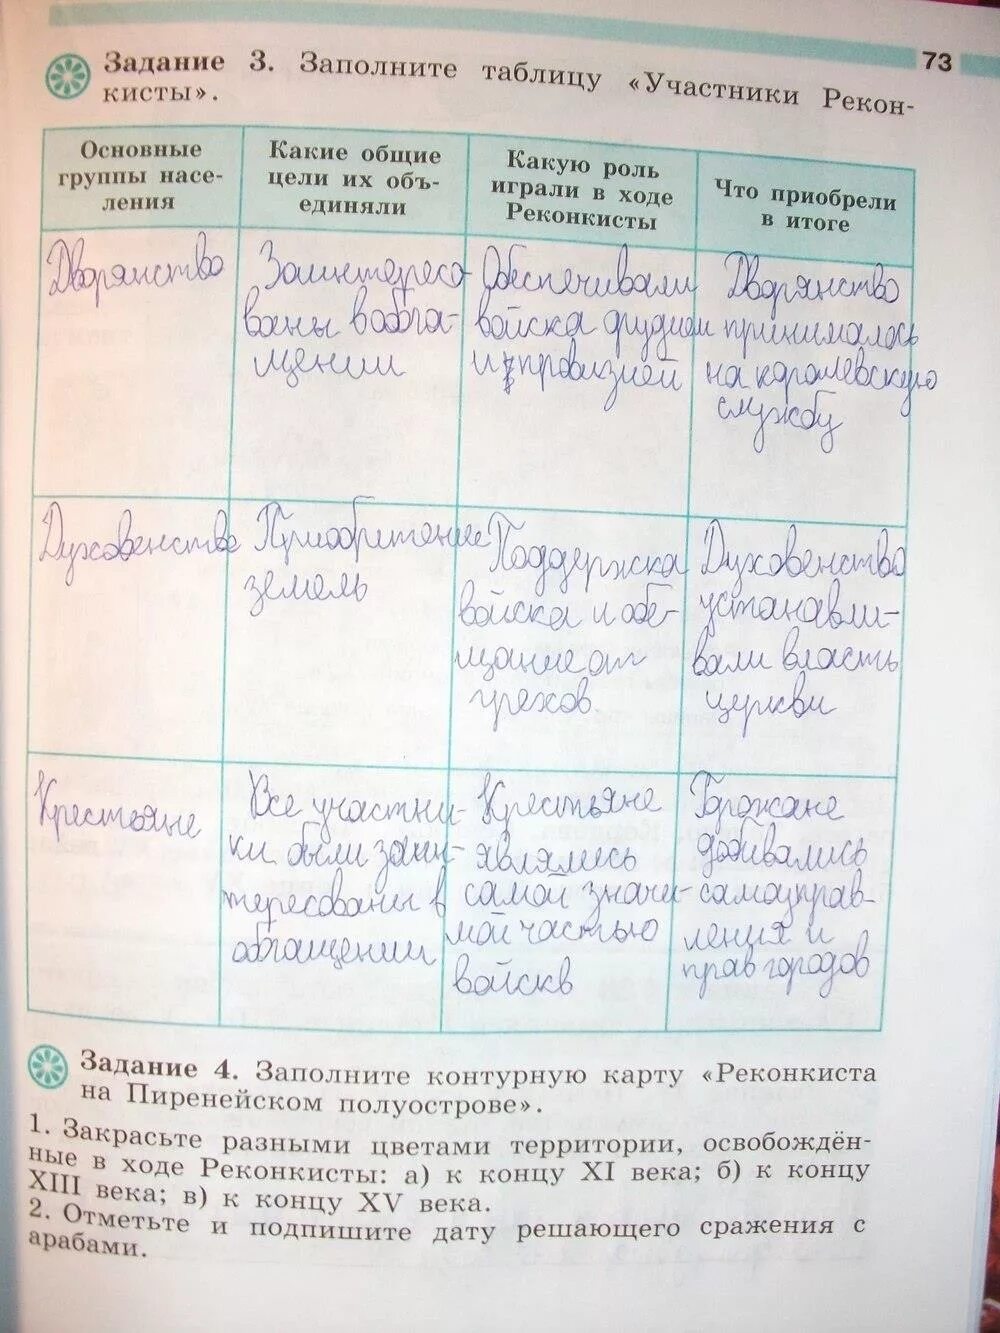 73
Задание 3. Заполните таблицу «Участники Рекон-
кисты».
Основные
группы насе-
ления
Какие общие
цели их объ-
единяли
Какую роль
играли в ходе
Реконкисты
Что приобрели
в итоге
Дворянство
Заинтересо
ваны в обога-
щении
Обеспечивали
войска орудием
и провизией
Дворянство
принималось
на королевскую
службу
Духовенство
Приобритение
земель
Поддержка
войска и обе-
щание от
грехов
Духовенство
устанавли-
вали власть
церкви
Крестьяне
Все участни-
ки были заин-
тересованы в
обгащении
Крестьяне
являлись
самой значи-
мой частью
войскв
Горжане
добивались
самоуправ-
ления и
прав городов
Задание 4. Заполните контурную карту «Реконкиста
на Пиренейском полуострове».
1. Закрасьте разными цветами территории, освобождён-
ные в ходе Реконкисты: а) к концу XI века; б) к концу
XIII века; в) к концу XV века.
2. Отметьте и подпишите дату решающего сражения с
арабами.